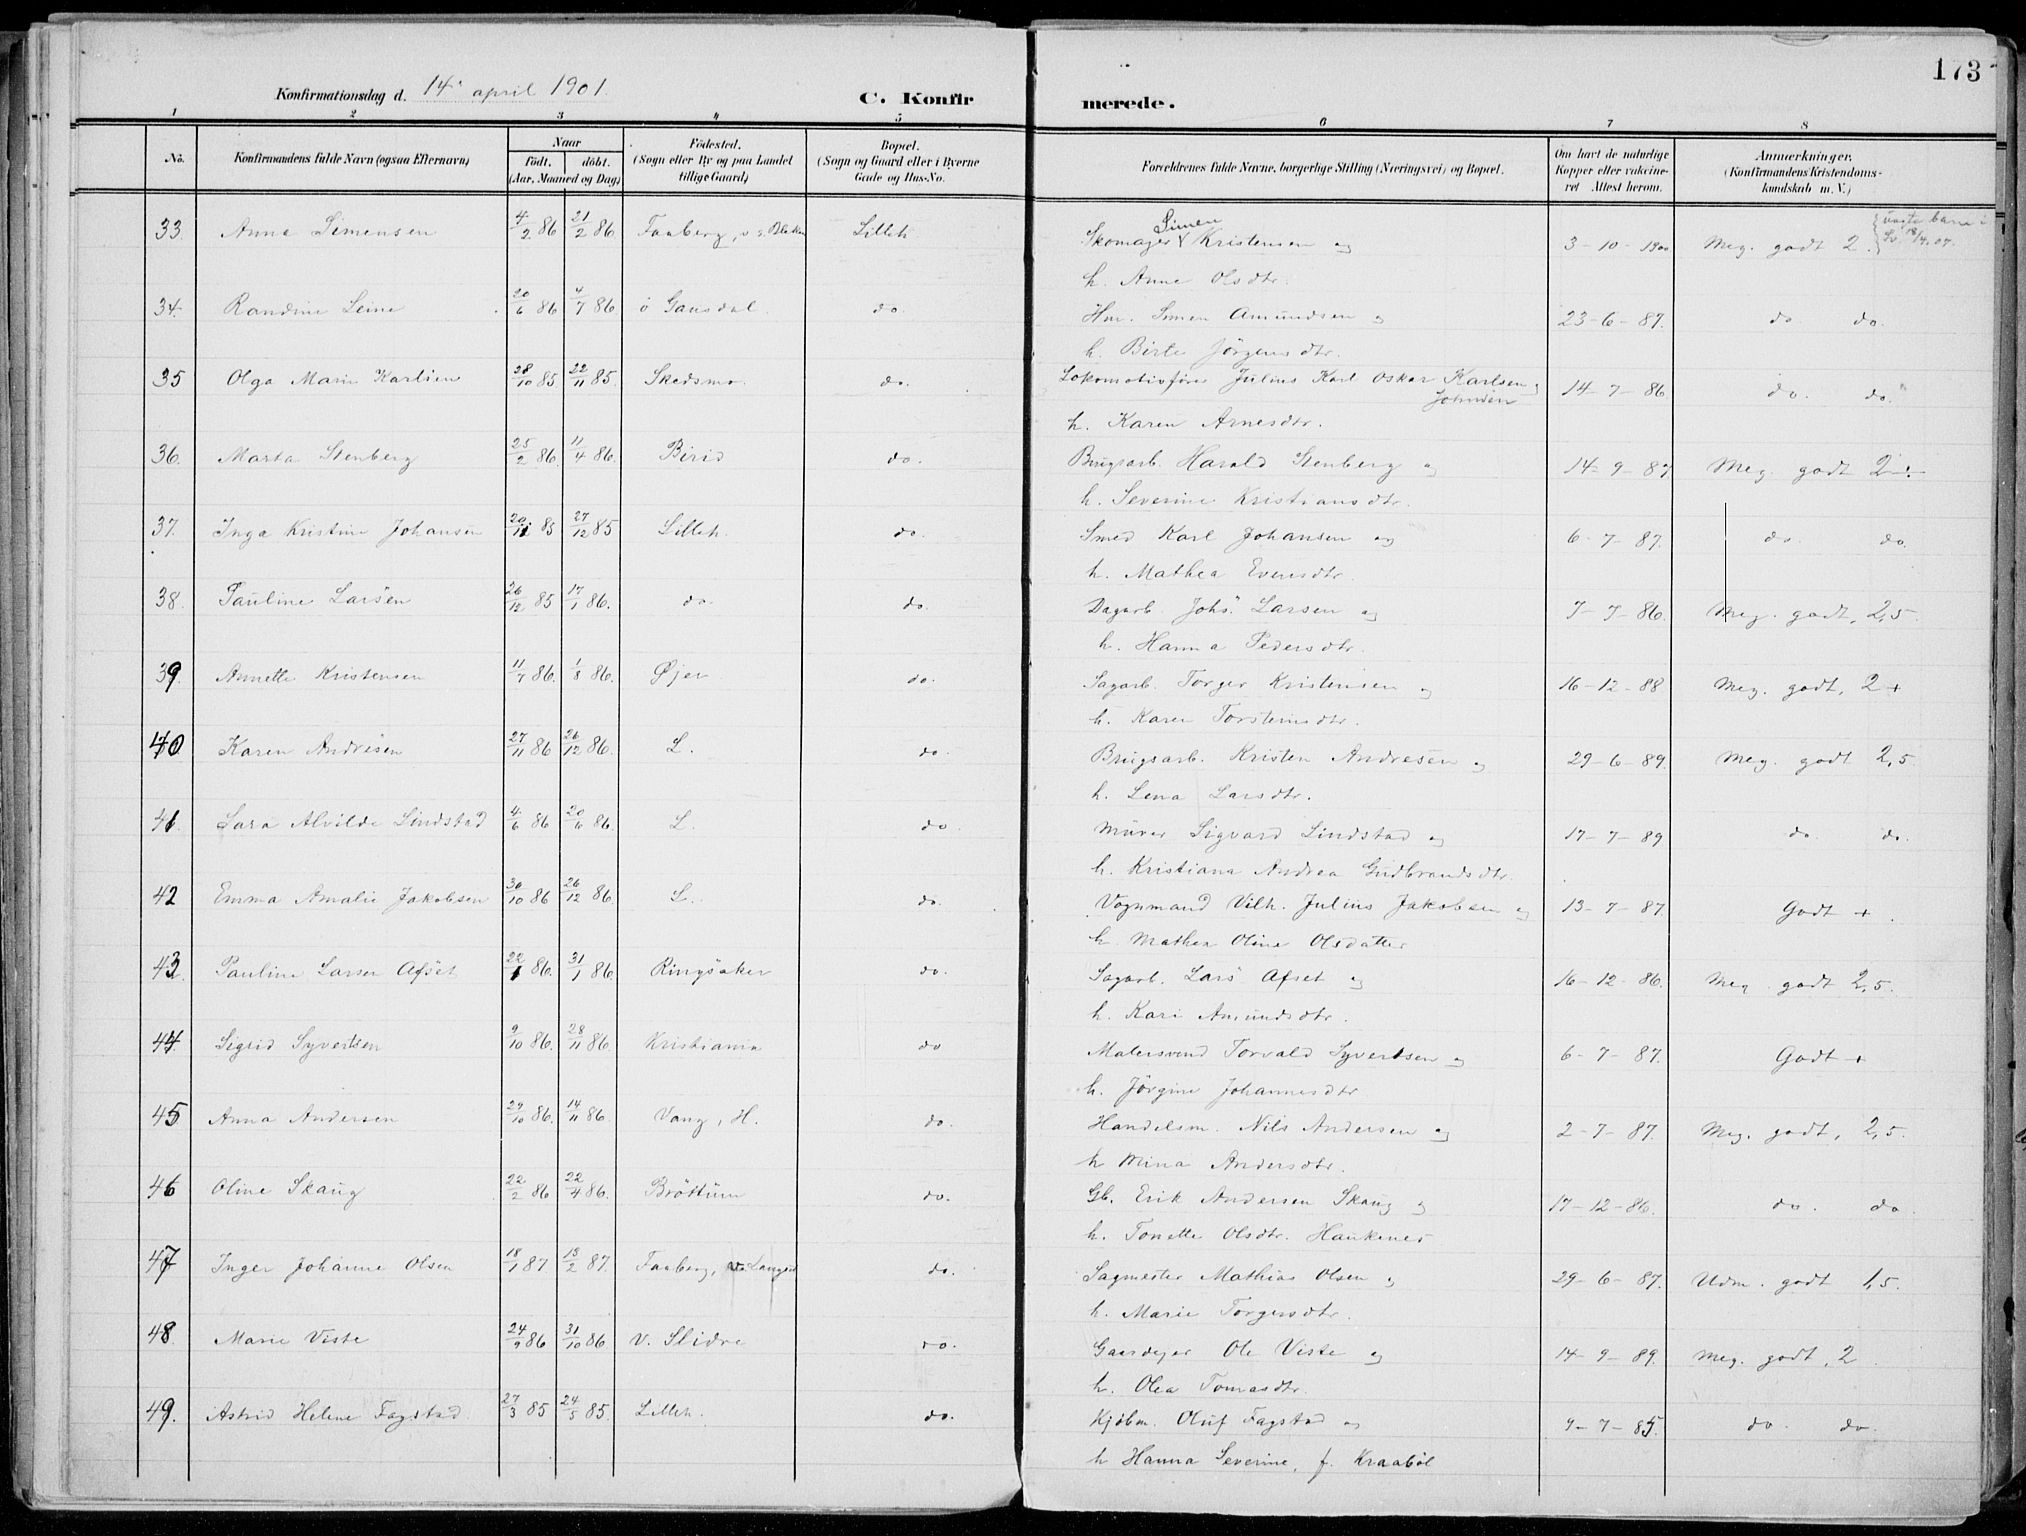 173
Konfirmationsdag d. 14. april 1901.
C. Konfir merede.
1 2 3 4 5 6 7 8
No. Konfirmandens fulde Navn (ogsaa Efternavn) Naar födt. döbt. (Aar, Maaned og Dag) Födested. (Sogn eller By og paa Landet tillige Gaard) Bopæl. (Sogn og Gaard eller i Byerne Gade og Hus-No. Forældrenes fulde Navne, borgerlige Stilling (Næringsvei) og Bopæl. Om havt de naturlige Kopper eller vakcineret. Attest herom. Anmærkninger. (Konfirmandens Kristendomskundskab m. V.)
33. Anna Simensen 4/2 86 21/2 86 Faaberg, Lilleh Skomager Simen Kristensen og 3-10-1900 Meg. godt 2.
h. Anne Olsdtr.
34. Randine Leine 20/6 86 4/7 86 ö Gausdal. do. Hm. Simen Amundsen og 23-6-87. do do.
h. Birte Jörgensdtr.
35 Olga Marie Karlsen 28/10 85 22/11 85. Skedsmo. do. Lokomotivförer Julius Karl Oskar Karlsen og 14-7-86 do. do.
Johnsen
h. Karen Arnesdtr.
36. Marta Stenberg 25/2 86. 11/4 86. Birid do. Brugsarb. Harald Stenberg og 14-9-87 Meg. godt 2
h. Severine Kristiansdtr.
37. Inga Kristine Johansen 20/11 85 27/12 85 Lilleh. do. Smed Karl Johansen og 6-7-87. do. do.
h. Mathea Evensdtr.
38. Pauline Larsen 26/12 85 17/1 86. do. do. Dagarb. Johs. Larsen og 7-7-86. Meg. godt, 2,5
h. Hanna Pedersdtr.
39 Annette Kristensen 11/7 86. 1/8 86. Øjer do. Sagarb. Torger Kristensen og 16-12-88 Meg. godt, 2 +
h. Karen Torsteinsdtr.
40 Karen Andresen 27/11 86 26/12 86. L. do. Brugsarb. Kristen Andresen og 29-6-89. Meg. godt 2,5
h. Lena Larsdtr.
41. Sara Alvilde Lindstad 4/6 86 20/6 86. L. do. Murer Sigvard Lindstad og 17-7-89 do. do.
h. Kristiana Andrea Gudbrandsdtr.
42 Emma Amalie Jakobsen 30/10 86 26/12 86. L. do. Vognmand Vilh. Julius Jakobsen og 13-7-87 Godt + .
h. Mathea Oline Olsdatter
43 Pauline Larsen Afset 22/1 86. 31/1 86. Ringsaker do. Sagarb. Lars Afset og 16-12-86. Meg. godt 2,5.
h. Kari Amundsdtr.
44. Sigrid Syvertsen 9/10 86. 28/11 86. Kristiania do Malersvend Torvald Syvertsen og 6-7-87. Godt +
h. Jörgine Johannesdtr
45 Anna Andersen 29/10 86. 14/11 86 Vang, H. do. Handelsm. Nils Andersen og 2-7-87. Meg. godt, 2,5.
h Mina Andersdtr.
46 Oline Skaug 22/2 86 22/4 86. Bröttum do. Gb. Erik Andersen Skaug og 17-12-86. do. do
h. Tonette Olsdtr. Haukenes
47 Inger Johanne Olsen 18/1 87 13/2 87. Faaberg, do. Sagmester Mathias Olsen og 29-6-87. Udm. godt 1,5.
h. Marie Torgersdtr.
48. Marie Viste 24/9 86 31/10 86 V. Slidre do. Gaardejer Ole Viste og 14-9-89. Meg. godt, 2.
h. Olea Tomasdtr.
49. Astrid Helene Fagstad. 27/3 85 24/5 85. Lilleh. do. Kjöbm. Oluf Fagstad og 9-7-85. do. do.
h Hanna Severine, f. Kraaböl